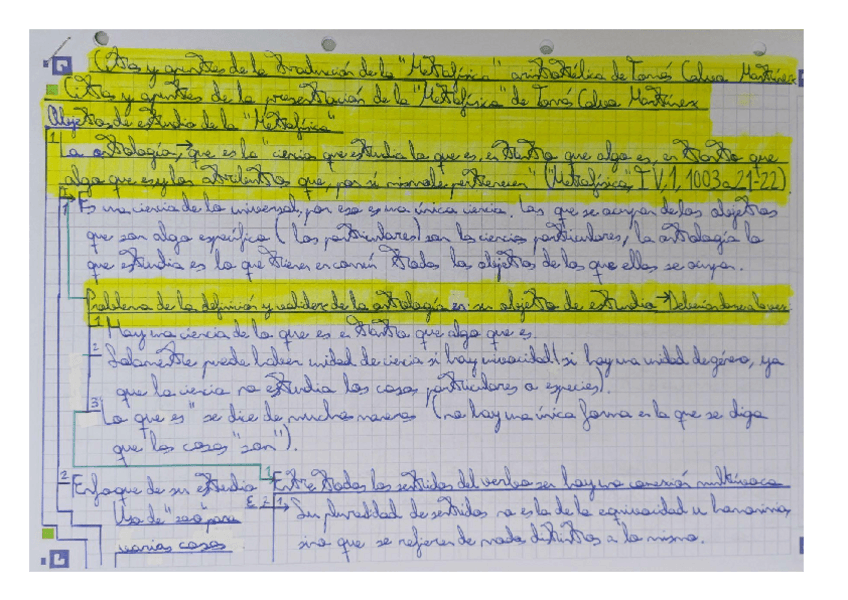 Citas y apuntes de la traducción de la "Metafísica" aristotélica de Tomás Calvo Martínez
Citas y apuntes de la presentación de la "Metafísica" de Tomás Calvo Martínez
Objetos de estudio de la "Metafísica"
1 La ontología, → que es la "ciencia que estudia lo que es, en tanto que algo es, en tanto que
algo que es y los atributos que, por sí mismo le pertenecen" ("Metafísica" IV, 1, 1003a 21-22)
1 Es una ciencia de lo universal, por eso es una única ciencia. Las que se ocupan de los objetos
que son algo específico (los particulares) son las ciencias particulares, la ontología lo
que estudia es lo que tienen en común todos los objetos de los que ellas se ocupan.
Problema de la definición y validez de la ontología en su objeto de estudio →
1 Hay una ciencia de lo que es en tanto que algo que es.
2 Solamente puede haber unidad de ciencia si hay univocidad (si hay una unidad de género, ya
que la ciencia no estudia las cosas particulares o especies).
3 Lo que es" se dice de muchas maneras (no hay una única forma en la que se diga
que las cosas "son").
2 Enfoque de su estudio 1 Entre todos los sentidos del verbo ser hay una conexión multívoca
Uso de "ser" para E. 2 1 → Su pluralidad de sentidos no es la de la equivocidad u homonimia,
varias cosas sino que se refieren de modos distintos a lo mismo.